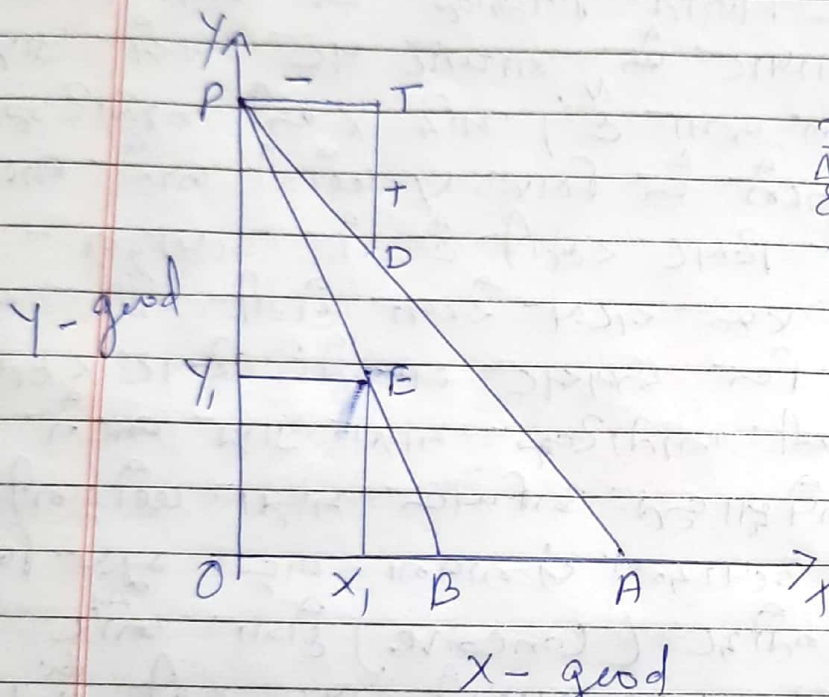 Y
P - T
+
D
Y - good
Y1 E
O X1 B A X
X - good